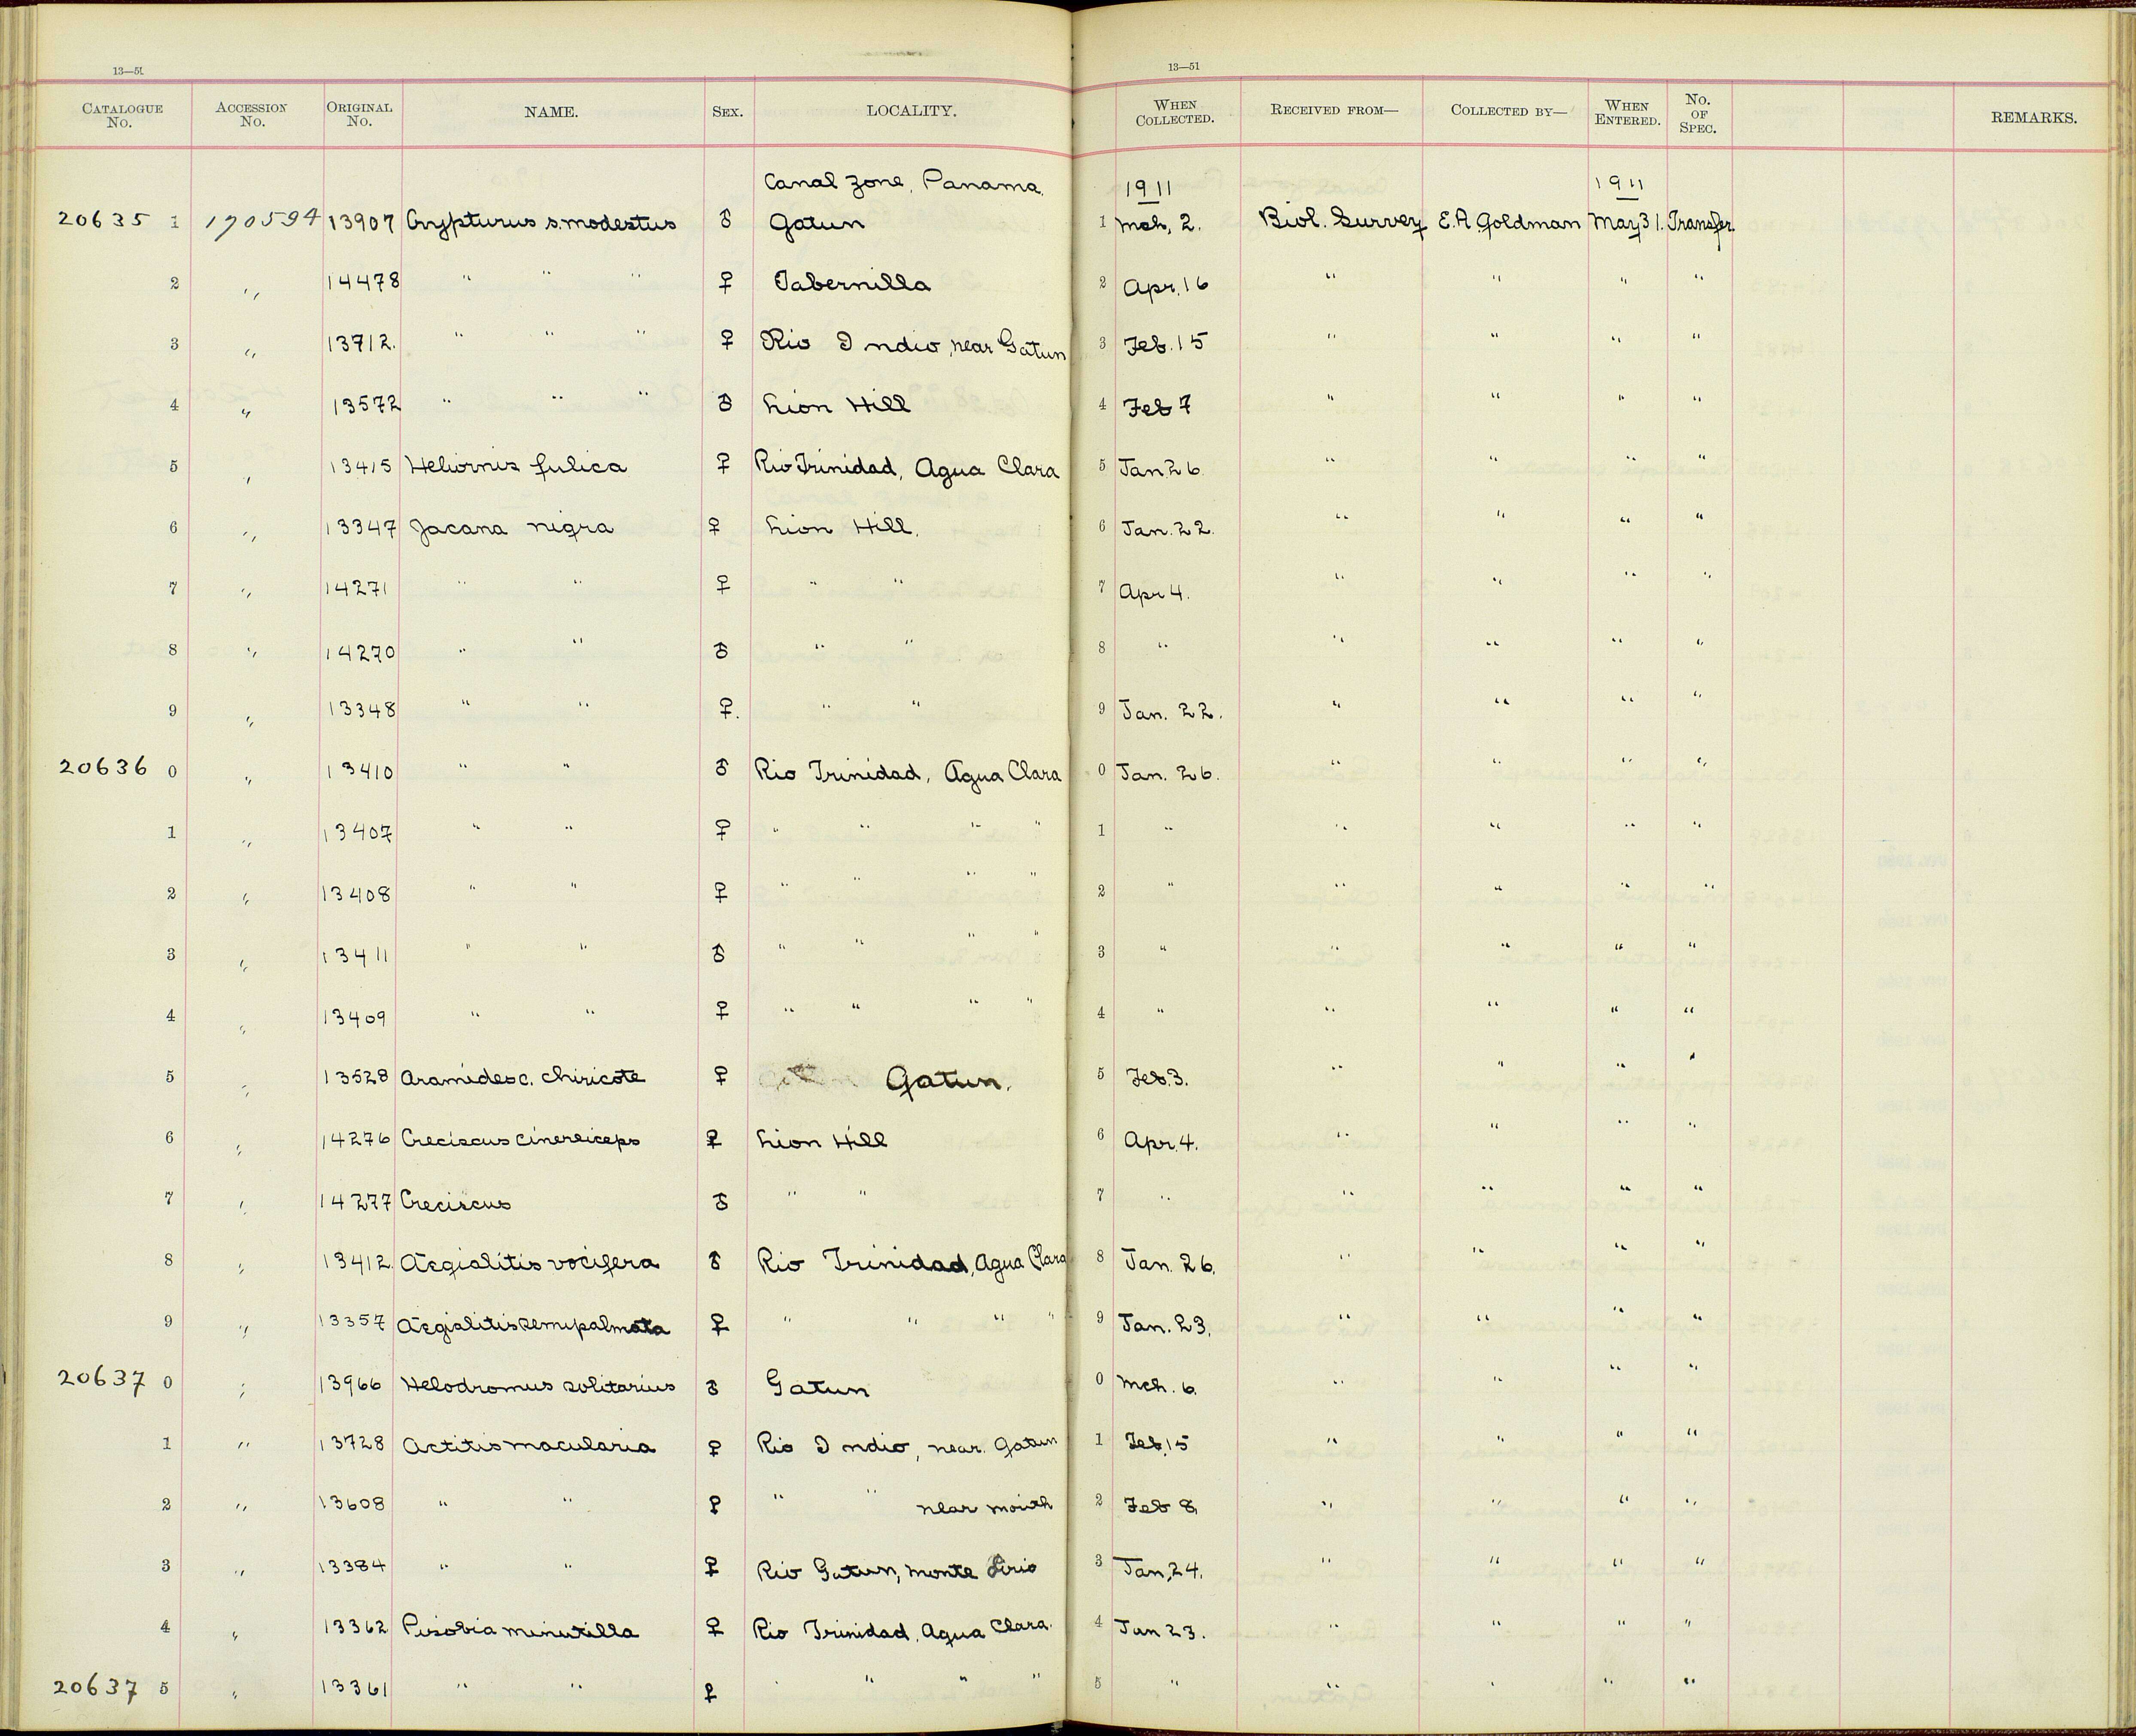 13—51 13—51
CATALOGUE No. ACCESSION No. ORIGINAL No. NAME. SEX. LOCALITY. WHEN COLLECTED. RECEIVED FROM— COLLECTED BY— WHEN ENTERED. No. OF SPEC. REMARKS.
Canal Zone, Panama 1911 1911
20635 1 170594 13907 Crypturus s. modestus ♂ Gatun 1 Mch, 2. Biol. Survey E.A. Goldman May 31. Transfer.
2 " 14478 " " " ♀ Tabernilla 2 Apr. 16 " " " "
3 " 13712. " " " ♀ Rio Indio, near Gatun 3 Feb. 15 " " " "
4 " 13572 " " " ♂ Lion Hill 4 Feb 7 " " " "
5 " 13415 Heliornis fulica ♀ Rio Trinidad, Agua Clara 5 Jan 26. " " " "
6 " 13347 Jacana nigra ♀ Lion Hill. 6 Jan. 22. " " " "
7 " 14271 " " ♀ " " 7 Apr 4. " " " "
8 " 14270 " " ♂ " " 8 " " " " "
9 " 13348 " " ♀. " " 9 Jan. 22. " " " "
20636 0 " 13410 " " ♂ Rio Trinidad, Agua Clara 0 Jan. 26. " " " "
1 " 13407 " " ♀ " " " " 1 " " " " "
2 " 13408 " " ♀ " " " " 2 " " " " "
3 " 13411 " " ♂ " " " " 3 " " " " "
4 " 13409 " " ♀ " " " " 4 " " " " "
5 " 13528 Aramides c. chiricote ♀ Gatun. 5 Feb. 3. " " " "
6 " 14276 Creciscus cinereiceps ♀ Lion Hill 6 Apr. 4. " " " "
7 " 14277 Creciscus ♂ " " 7 " " " " "
8 " 13412 Aegialitis vocifera ♂ Rio Trinidad, Agua Clara 8 Jan. 26. " " " "
9 " 13357 Aegialitis semipalmata ♀ " " " " 9 Jan. 23. " " " "
20637 0 " 13966 Helodromus solitarius ♂ Gatun 0 Mch. 6. " " " "
1 " 13728 Actitis macularia ♀ Rio Indio, near Gatun 1 Feb. 15 " " " "
2 " 13608 " " ♀ " " near mouth 2 Feb 8. " " " "
3 " 13384 " " ♀ Rio Gatun, Monte Lirio 3 Jan. 24. " " " "
4 " 13362 Pisobia minutilla ♀ Rio Trinidad, Agua Clara. 4 Jan 23. " " " "
20637 5 " 13361 " " ♀ " " " " 5 " " " " "